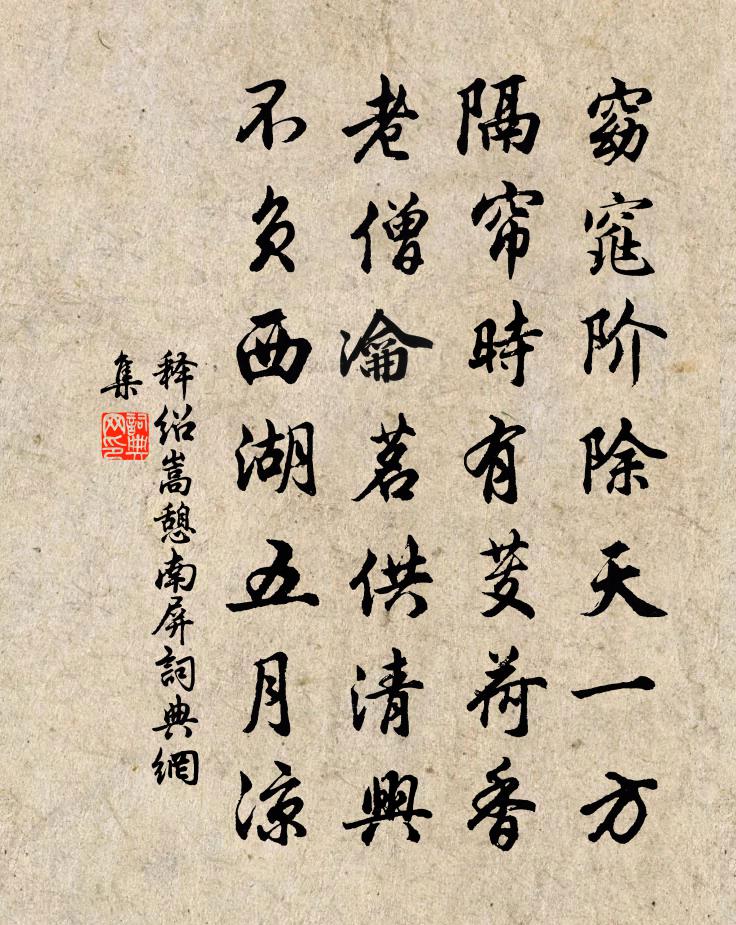 窈窕阶除天一方
隔帘時有芰荷香
老僧瀹茗供清興
不负西湖五月凉
释绍嵩憩南屏詞典網
集
詞典
网印